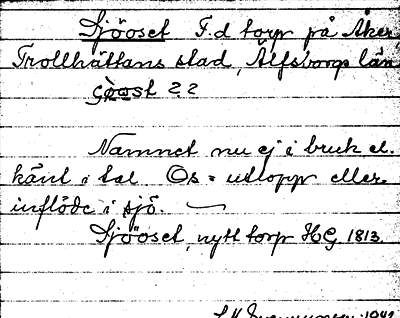 Sjöoset F.d torp på Åker,
Trollhättans stad, Älfsborgs län
Namnet nu ej i bruk el.
känt i tal Os = utlopp eller
inflöde i sjö.
Sjöoset, nytt torp HG. 1813.